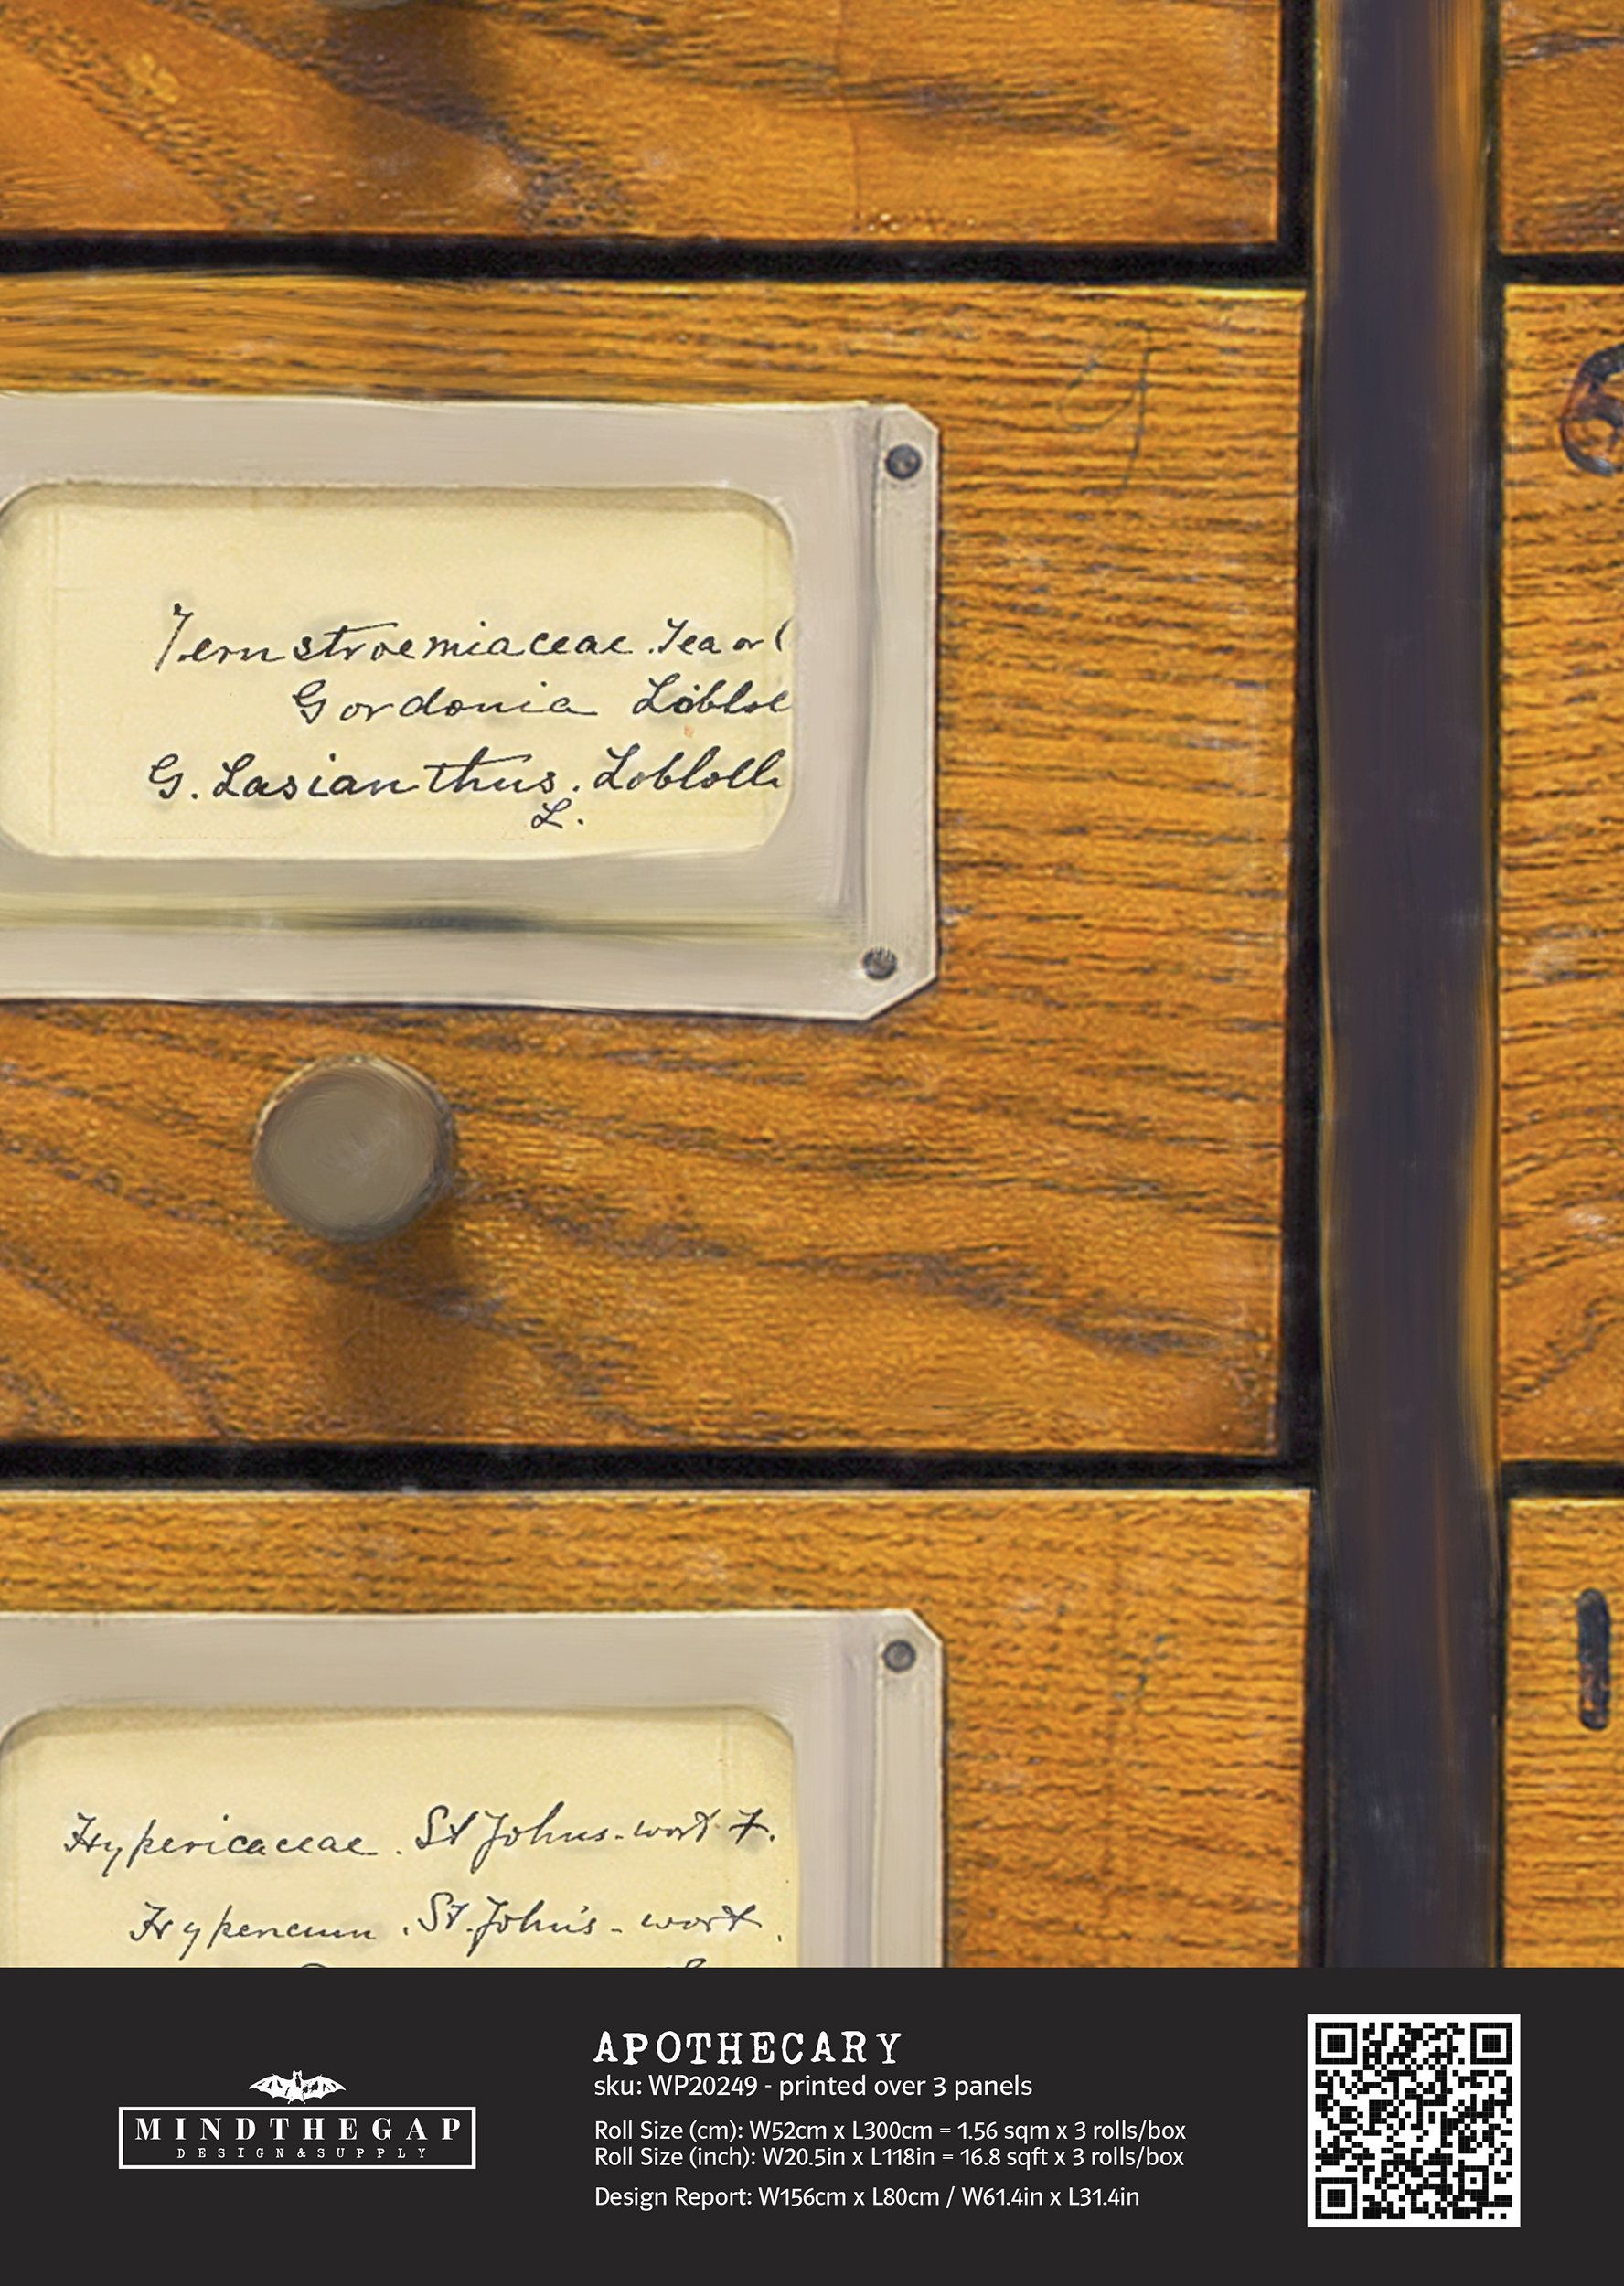 Ternstroemiaceae. Tea or (
Gordonia Lobloll
G. Lasianthus. Loblolly
L.
Hypericaceae. St Johns-wort F.
Hypericum. St. John's-wort.
MINDTHEGAP
DESIGN & SUPPLY
APOTHECARY
sku: WP20249 - printed over 3 panels
Roll Size (cm): W52cm x L300cm = 1.56 sqm x 3 rolls/box
Roll Size (inch): W20.5in x L118in = 16.8 sqft x 3 rolls/box
Design Report: W156cm x L80cm / W61.4in x L31.4in